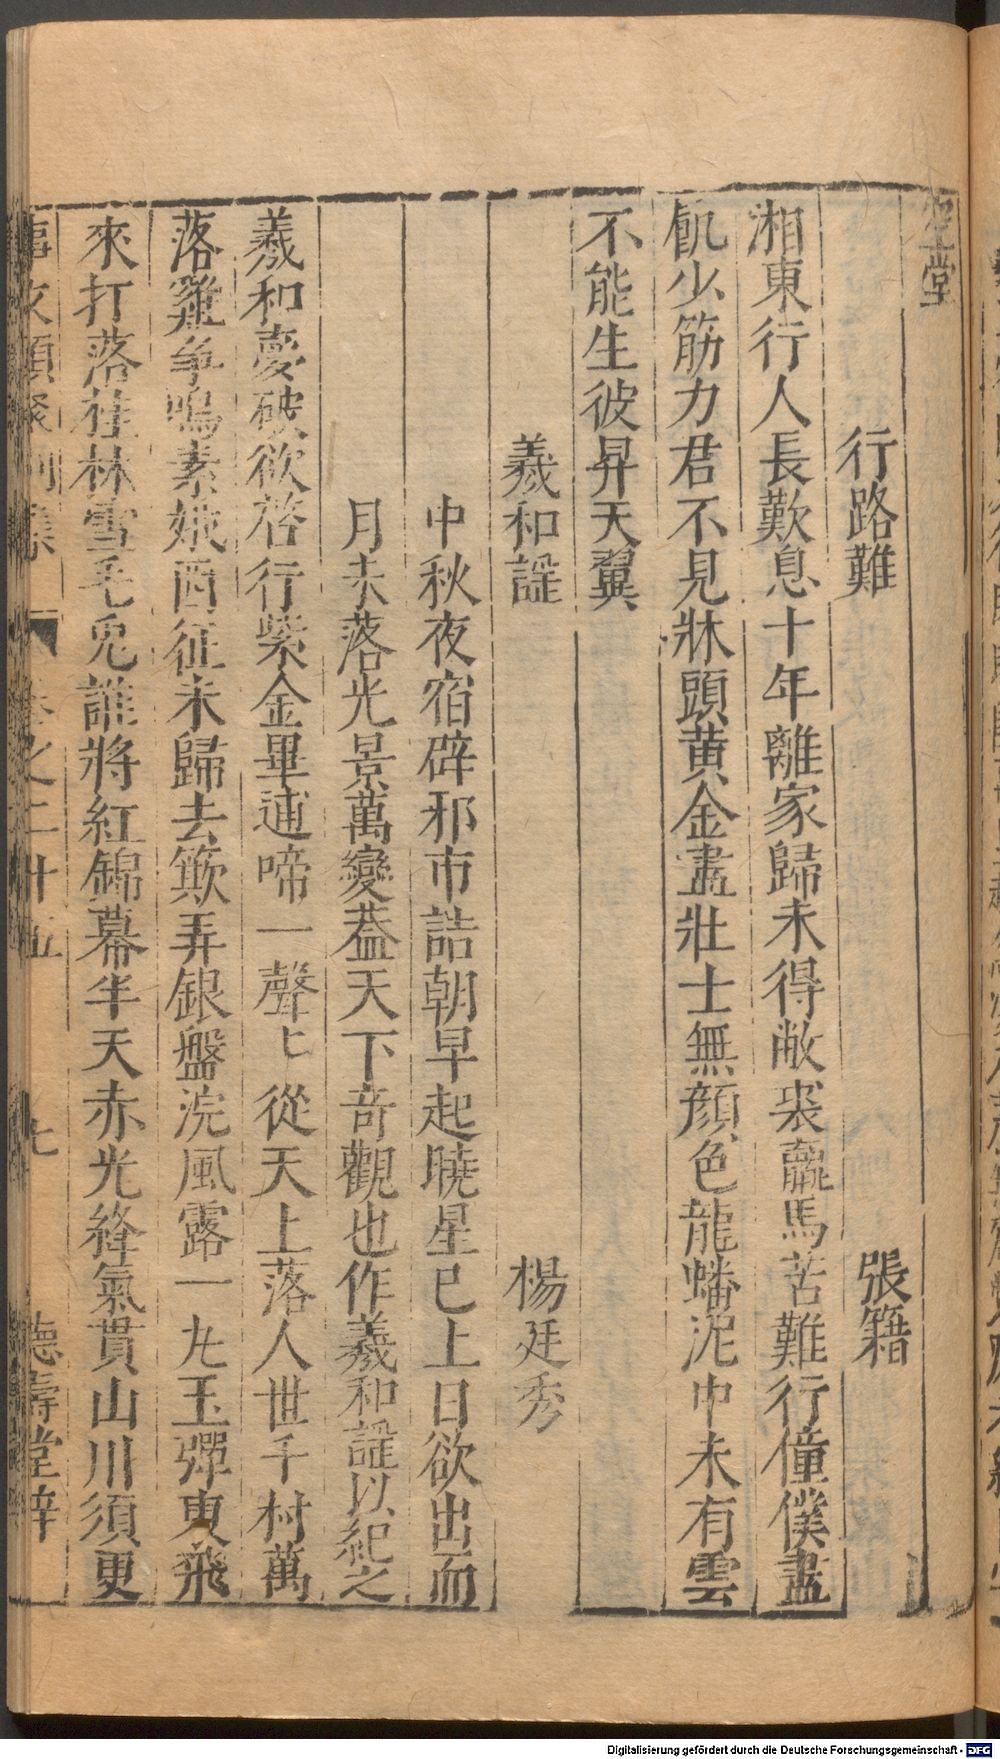 空堂
行路難 張籍
湘東行人長歎息十年離家歸未得敝裘羸馬苦難行僮僕盡
飢少筋力君不見牀頭黃金盡壯士無顏色龍蟠泥中未有雲
不能生彼昇天翼
羲和謡 楊廷秀
中秋夜宿辟邪市詰朝早起曉星已上日欲出而
月未落光景萬變蓋天下奇觀也作羲和謡以紀之
羲和夢破欲啓行紫金畢逋啼一聲〻從天上落人世千村萬
落雞爭鳴素娥西征未歸去簸弄銀盤浣風露一丸玉彈東飛
來打落桂林雪毛兎誰將紅錦幕半天赤光絳氣貫山川須更
事文類聚別集 卷之二十五 七 德壽堂梓
Digitalisierung gefördert durch die Deutsche Forschungsgemeinschaft - DFG